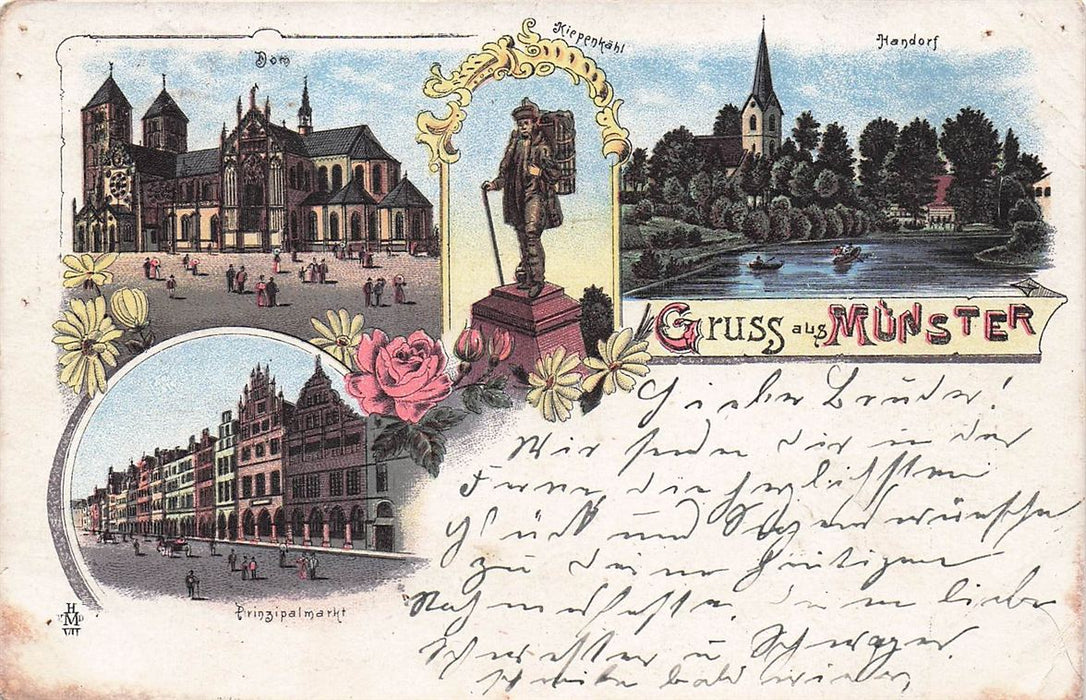 Dom
Kiepenkähl
Handorf
Gruss aus MÜNSTER
Lieber Bruder!
Wir senden Dir in der
Ferne die herzlichsten
Glück und Segenswünsche
zu Deinem heutigen
Deine liebe
Schwester u Schwager
schreibe bald wieder
Prinzipalmarkt
H
M